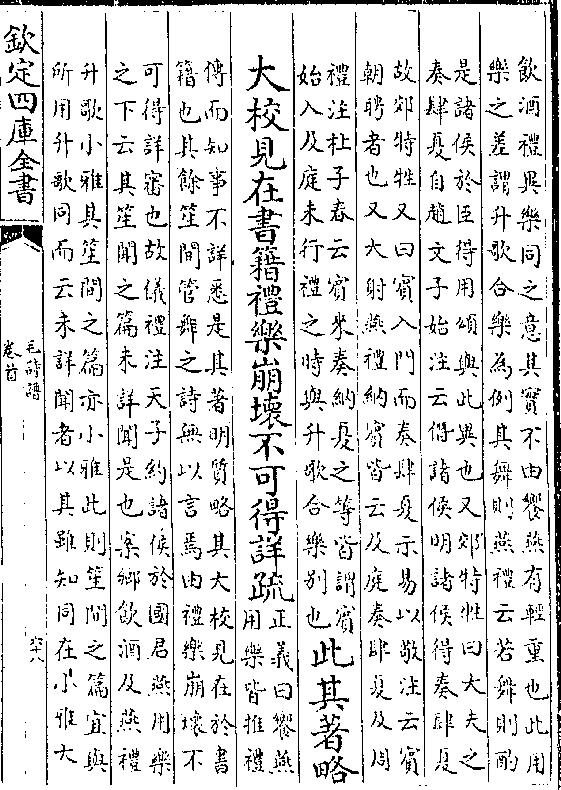 飲酒禮異樂同之意其實不由饗燕有輕重也此用
樂之差謂升歌合樂為例其舞則燕禮云若舞則酌
是諸侯於臣得用頌與此異也又郊特牲曰大夫之
奏肆夏自趙文子始注云僭諸侯明諸侯得奏肆夏
故郊特牲又曰賓入門而奏肆夏示易以敬注云賓
朝聘者也又大射燕禮納賓皆云及庭奏肆夏及周
禮注杜子春云賓來奏納夏之等皆謂賓
始入及庭未行禮之時與升歌合樂別也
此其著略
大校見在書籍禮樂崩壞不可得詳疏
正義曰饗燕
用樂皆推禮
傳而知事不詳悉是其著明質略其大校見在於書
籍也其餘笙間管舞之詩無以言焉由禮樂崩壞不
可得詳審也故儀禮注天子約諸侯於國君燕用樂
之下云其笙間之篇未詳聞是也案鄉飲酒及燕禮
升歌小雅其笙間之篇亦小雅此則笙間之篇宜與
所用升歌同而云未詳聞者以其雖知同在小雅大
欽定四庫全書
毛詩譜
卷首
六十八